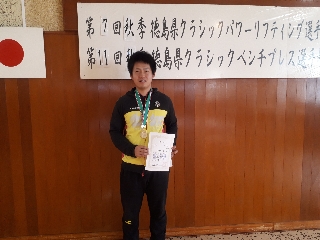 第7回秋季徳島県クラシックパワーリフティング選手
第11回秋季徳島県クラシックベンチプレス選手